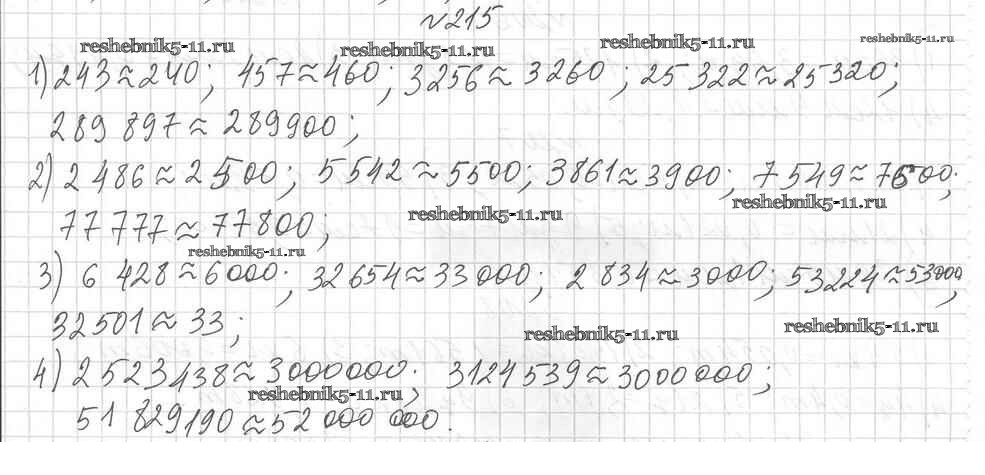 №215
reshebnik5-11.ru reshebnik5-11.ru reshebnik5-11.ru reshebnik5-11.ru
1) 243≈240; 457≈460; 3256≈3260; 25 322≈25 320;
289 897≈289900;
2) 2 486≈2 500; 5 542≈5500; 3861≈3900; 7 549≈7500;
reshebnik5-11.ru reshebnik5-11.ru
77 777≈77800;
reshebnik5-11.ru
3) 6 428≈6000; 32 654≈33 000; 2 834≈3000; 53224≈53000;
32 501≈33;
reshebnik5-11.ru reshebnik5-11.ru
4) 2 523 438≈3000000; 3124 539≈3000 000;
reshebnik5-11.ru
51 829190≈52 000 000.